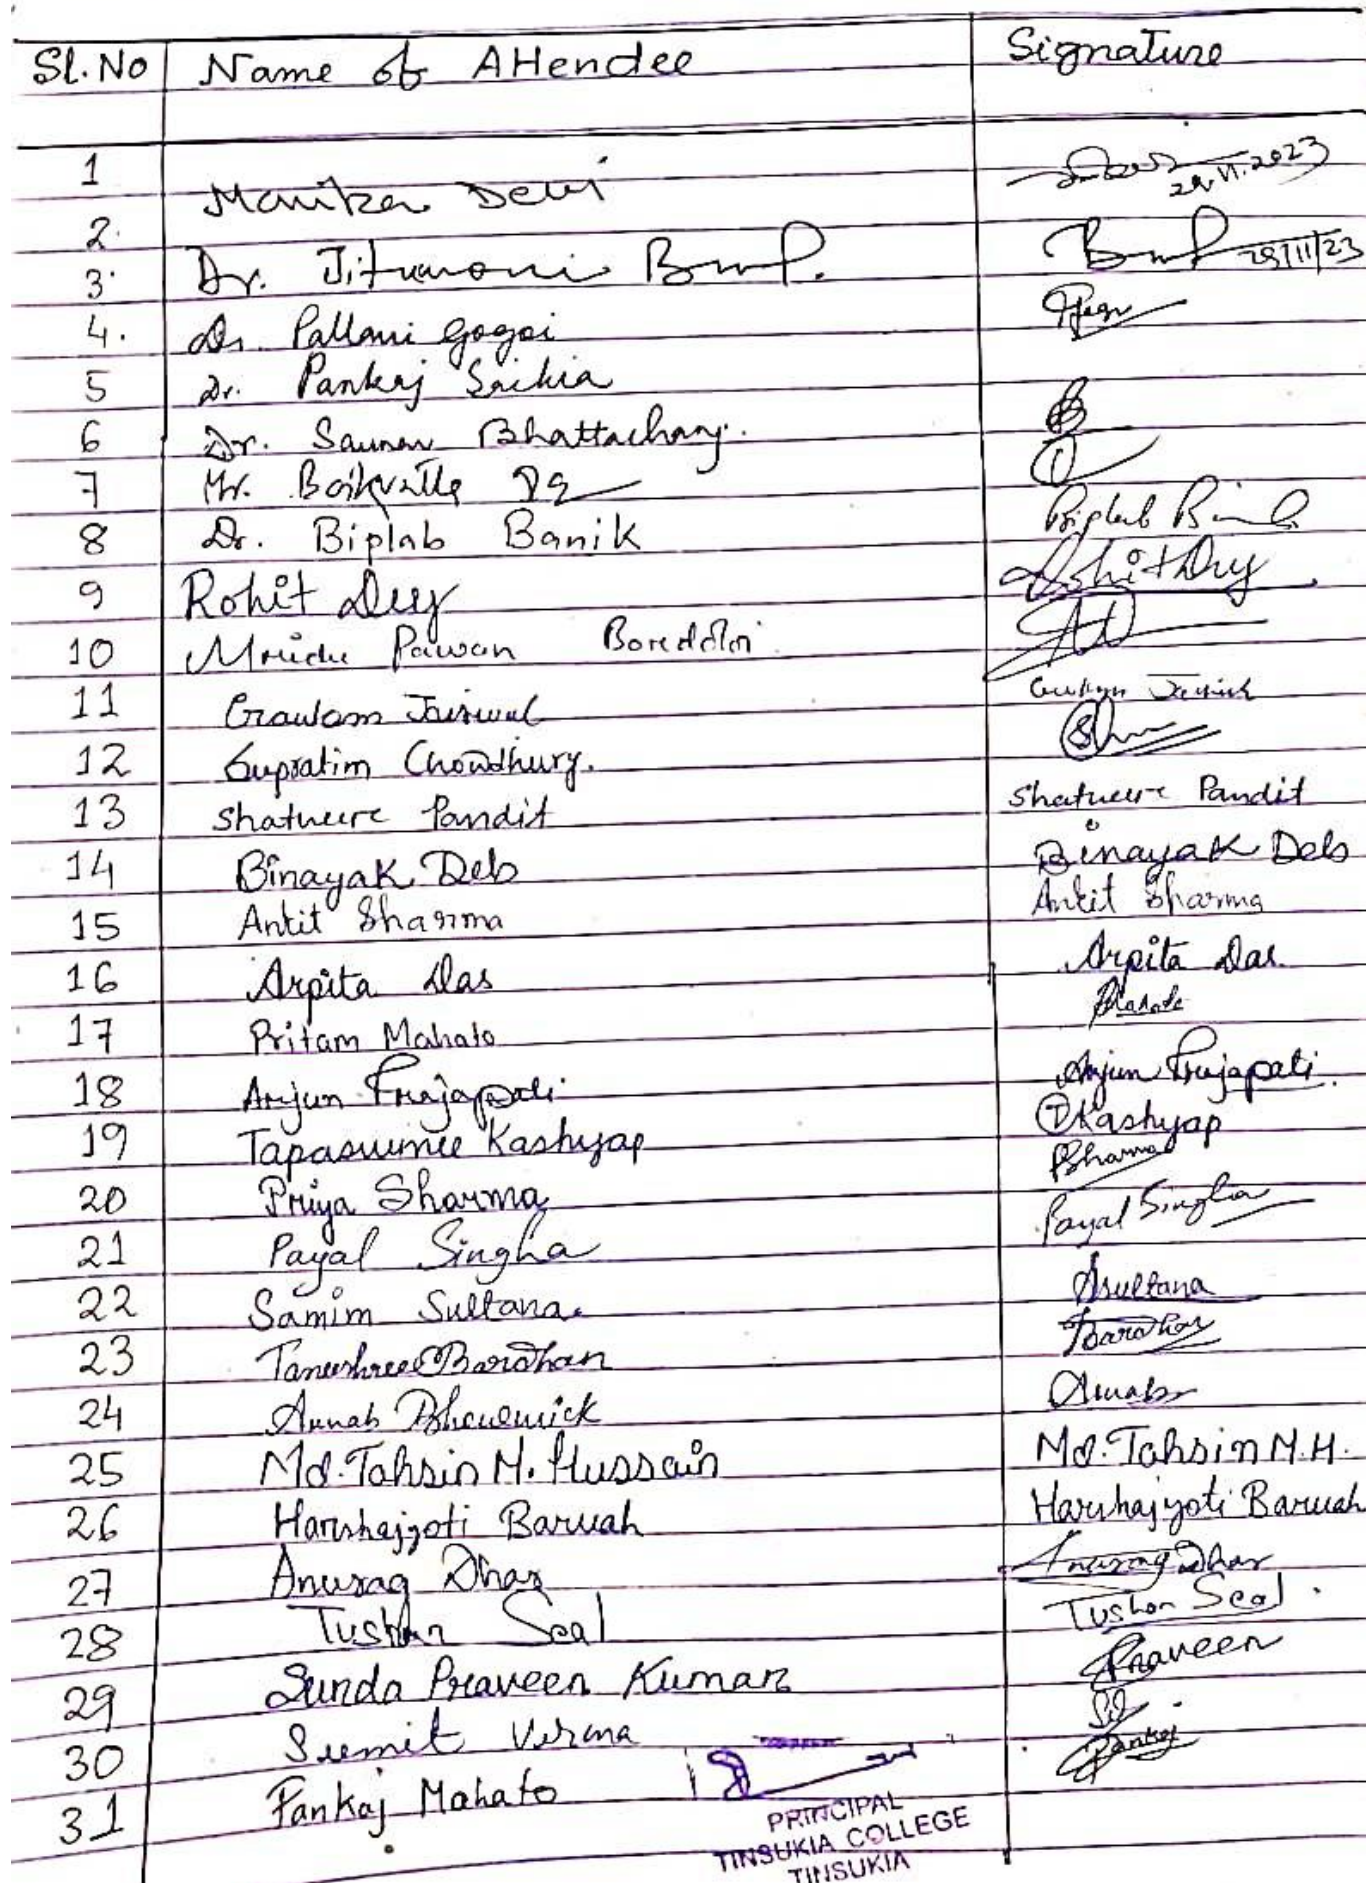 Sl. No Name of Attendee Signature
1 Devi 29.11.2023
2.
3. Dr. Jitumoni 29/11/23
4. Dr. Pallavi Gogoi
5 Dr. Pankaj Saikia
6 Dr. Bhattacharj.
7 Mr.
8 Dr. Biplab Banik Biplab
9 Rohit Dey Rohit Dey
10 Mridu Pawan Bordoloi
11 Gautam Jaiswal
12 Supratim Chowdhury.
13 Pandit Pandit
14 Binayak Deb Binayak Deb
15 Ankit Sharma Ankit Sharma
16 Arpita Das Arpita Das.
17 Pritam Mahato Mahato
18 Arjun Prajapati Arjun Prajapati.
19 Kashyap T Kashyap
20 Priya Sharma PSharma
21 Payal Singha Payal Singha
22 Samim Sultana. Sultana
23 Tanushree Bardhan TBardhan
24 Arnab Bhowmick Arnab
25 Md. Tahsin M. Hussain Md. Tahsin M.H.
26 Harshajyoti Baruah Harshajyoti Baruah
27 Anurag Dhar Anurag Dhar
28 Tushar Seal Tushar Seal.
29 Sunda Praveen Kumar Praveen
30 Sumit Verma
31 Pankaj Mahato Pankaj
PRINCIPAL
TINSUKIA COLLEGE
TINSUKIA